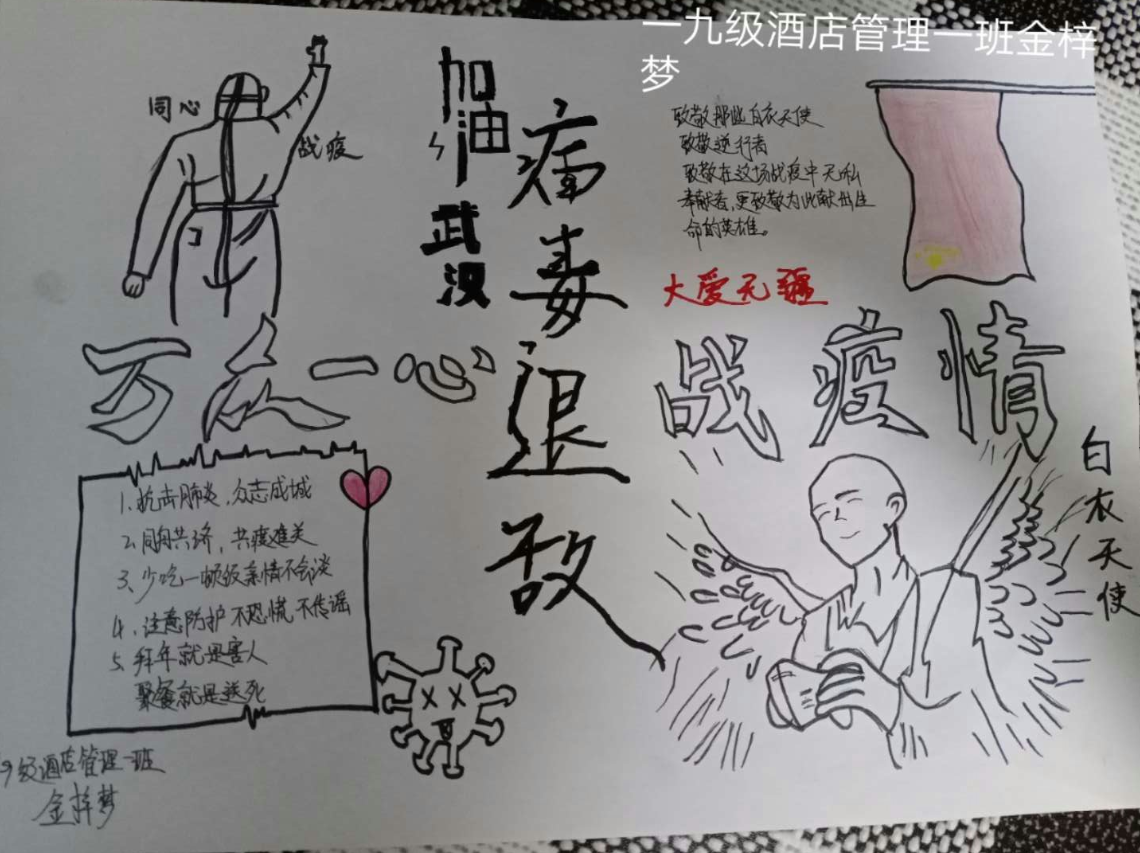 一九级酒店管理一班金梓
梦
同心
战疫
加油
武汉
病毒退散
致敬那些白衣天使
致敬逆行者
致敬在这场战疫中无私
奉献者,更致敬为此献出生
命的英雄。
大爱无疆
万众一心
战疫情
白衣天使
1、抗击肺炎,众志成城
2、同舟共济,共渡难关
3、少吃一顿饭亲情不会淡
4、注意防护不恐慌,不传谣
5、拜年就是害人
聚餐就是送死
9级酒店管理一班
金梓梦